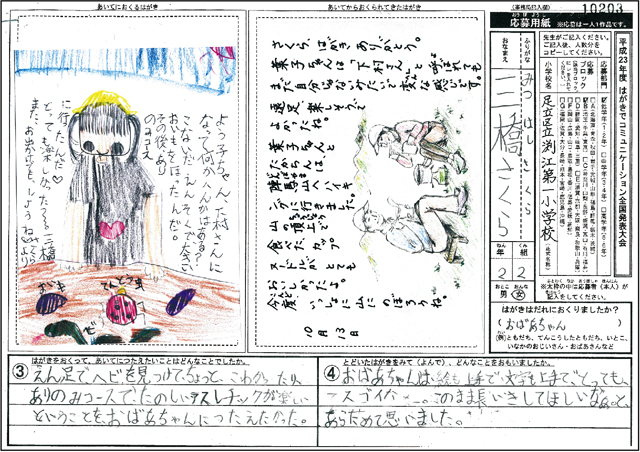 あいてにおくるはがき
あいてからおくられてきたはがき
(事務局記入欄)
10203
応募用紙
※応募は一人1作品です。
平成23年度 はがきでコミュニケーション全国発表大会
先生がご記入ください。
ご記入後、人数分を
コピーしてください。
応募部門
応募ブロック
小学校名
足立区立渕江第一小学校
ふりがな
おなまえ
みつはしさくら
三橋さくら
ねん
年
2
くみ
組
2
おとこ
男
おんな
女
※太枠の中は応募者(本人)が
記入をしてください。
はがきはだれにおくりましたか?
(おばあちゃん)
(例)ともだち、てんこうしたともだち、いとこ、
いなかのおじいさん・おばあさんなど
よう子ちゃん、下村さんに
なって何かへんかはある?
こないだえんそくで大きい
おいもをほったんだ。
その後、あり
のみコース
に行ったんだ
とっても楽しかったよ。
また、お出かけをしようね。
三橋
さくら
さくら、はがきありがとう。
葉子ちゃんは「下村さん」と呼ばれても
まだ自分じゃないみたいで変な感じです。
遠足、楽しそうで
よかったね。
葉子ちゃんと
たからくんは
鍋割山へハイキ
ングに行きました。
山の頂上で
食べた、カップ
ヌードルがとても
おいしかったよ。
今度、いっしょに山にのぼろうね。
10月13日
はがきをおくって、あいてにつたえたいことはどんなことでしたか。
③えん足でヘビを見つけて、ちょっと、こわかったり、
ありのみコースでたのしいアスレチックが楽しい
ということをおばあちゃんにつたえたかった。
とどいたはがきをみて(よんで)、どんなことをおもいましたか。
④おばあちゃんは、絵も上手で文字も上手で、とっても、
スゴイなー。このまま長いきしてほしいなぁ。と、
あらためて思いました。